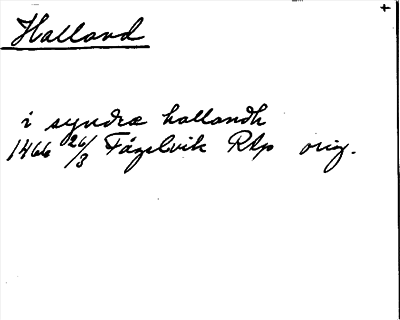 +
Halland
i syndra hallandh
1466 26/3 Fågelvik Rtp orig.